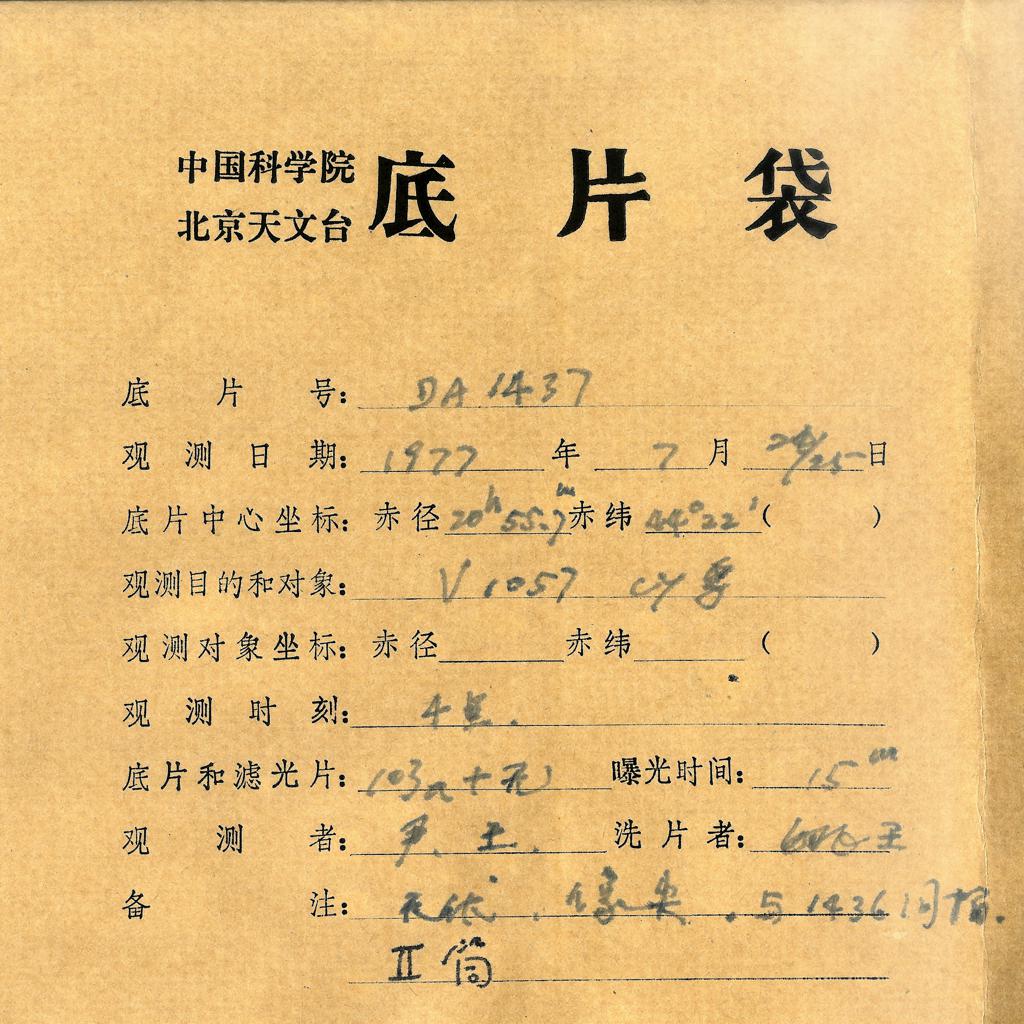 中国科学院
北京天文台
底片袋
底片号: DA 1437
观测日期: 1977年 7月 24/25日
底片中心坐标: 赤径20ʰ55.7ᵐ赤纬44°22′( )
观测目的和对象: V 1057 cy
观测对象坐标: 赤径 赤纬 ( )
观测时刻:
底片和滤光片: 103a+无 曝光时间: 15ᵐ
观测者: 尹、王. 洗片者: 王
备注: 1436同
II 筒